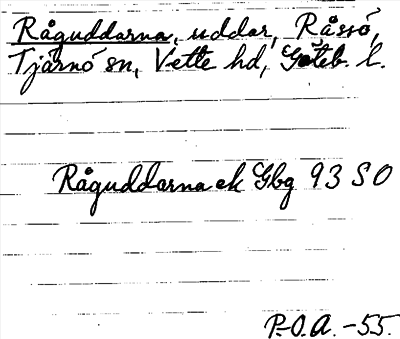 Råguddarna, uddar, Råssö,
Tjärnö sn, Vette hd, Göteb. l.
Råguddarna ek Gbg 93 SO
P.-O.A. -55.